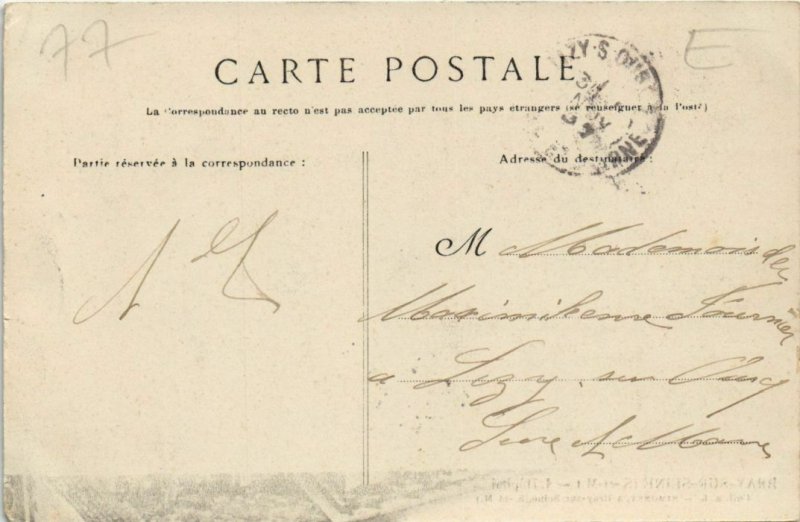 77
E
CARTE POSTALE
La Correspondance au recto n'est pas acceptée par tous les pays étrangers (se renseigner à la Poste)
Partie réservée à la correspondance :
Adresse du destinataire :
M Mademoiselle
Maximilienne Fournier
a Lizy sur Ourcq
Seine et Marne
BRAY-SUR-SEINE (S.-et-M.)